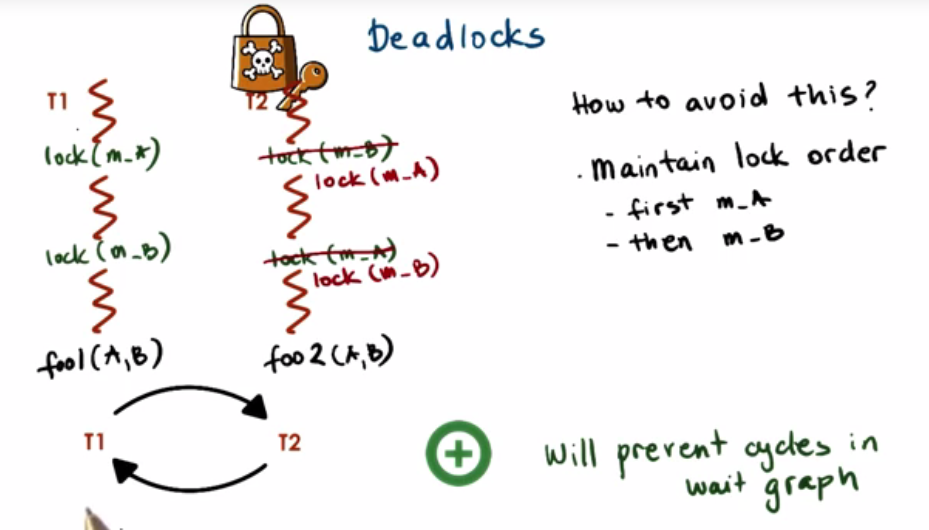 Deadlocks
T1
lock(m_A)
lock(m_B)
foo1(A,B)
T2
lock(m_B)
lock(m_A)
lock(m_A)
lock(m_B)
foo2(A,B)
How to avoid this?
. Maintain lock order
- first m_A
- then m_B
T1
T2
+
Will prevent cycles in
wait graph